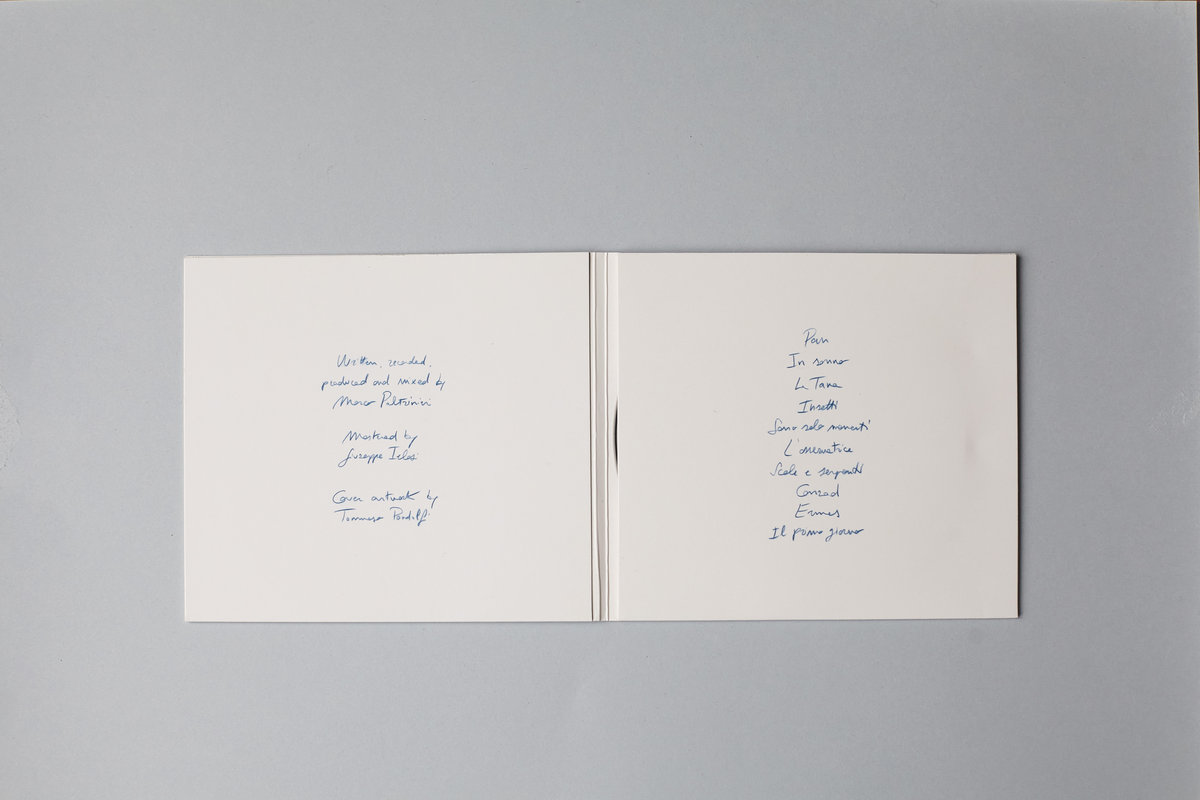 Written, recorded,
produced and mixed by
Marco Peltrinini
Mastered by
Giuseppe Ielasi
Cover artwork by
Tommaso Pandolfi
Pan
In sonno
La Tana
Insetti
Sono solo momenti
Scale e serpenti
Conrad
Ermes
Il primo giorno